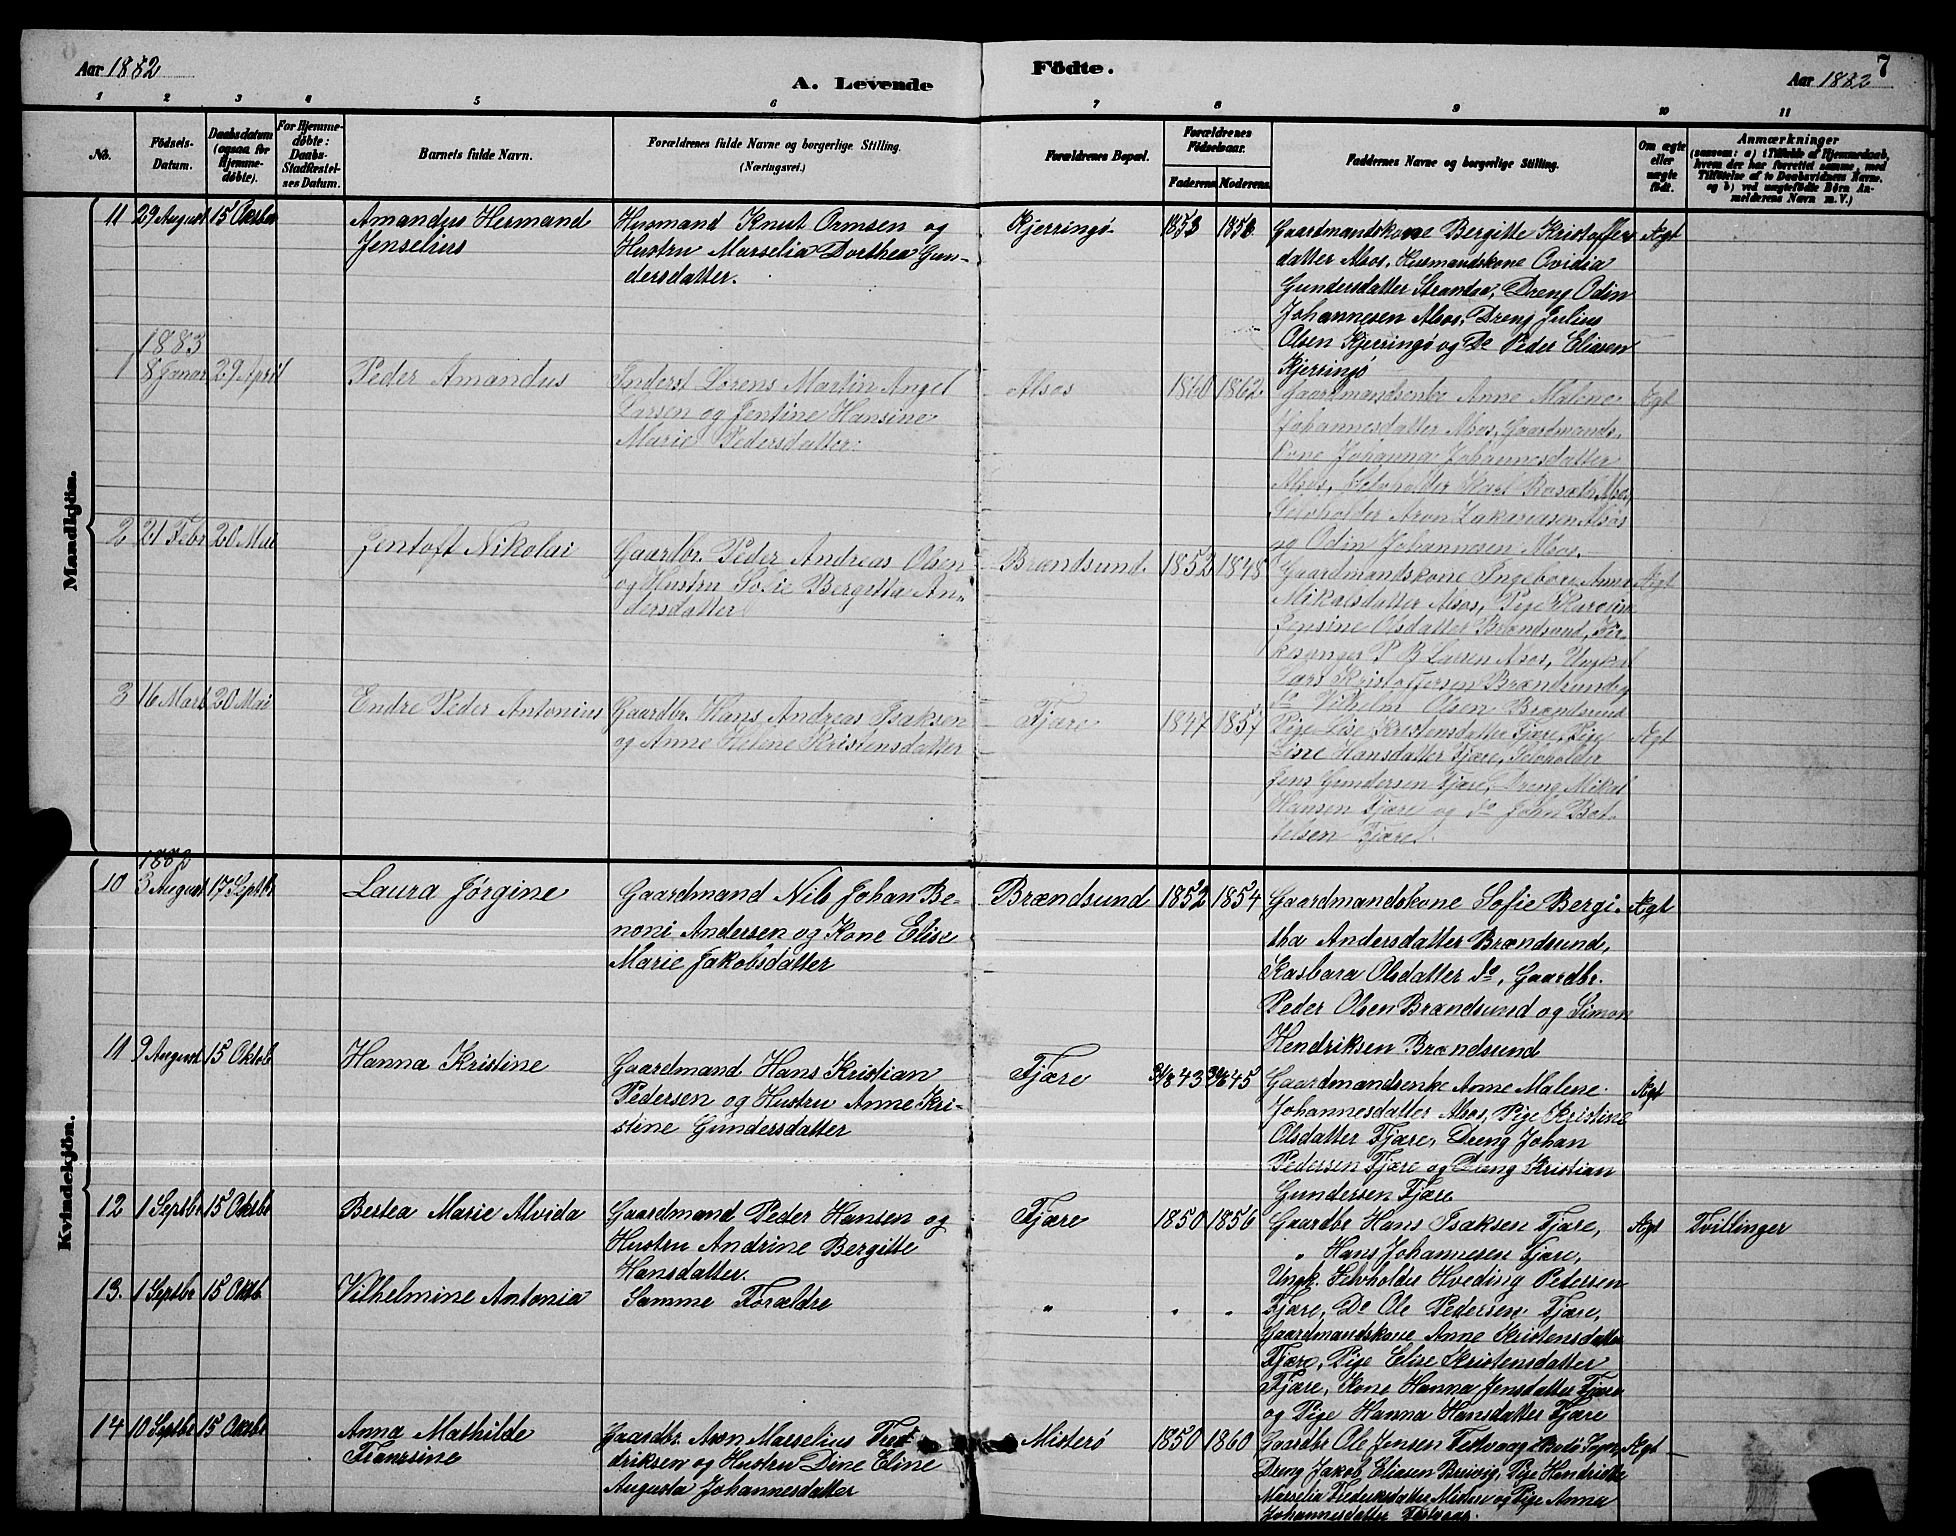 Aar 1882
A. Levende
Födte.
7
Aar 1882
1 2 3 4 5 6 7 8 9 10 11
No.
Födsels-
Datum.
Daabsdatum
(ogsaa for
Hjemme-
döbte).
For Hjemme-
döbte:
Daabs-
Stadfæstel-
ses Datum.
Barnets fulde Navn.
Forældrenes fulde Navne og borgerlige Stilling.
(Næringsvei.)
Forældrenes Bopæl.
Forældrenes
Födselsaar.
Faderens Moderens
Faddernes Navne og borgerlige Stilling.
Om ægte
eller
uægte
födt.
Anmærkninger
(saasom: a) i Tilfælde af Hjemmedaab,
hvem der har forrettet samme, med
Tilföielse af to Daabsvidners Navne,
og b) ved uægtefödte Börn An-
melderens Navn m.V.)
Mandkjön.
11 29 August 15 Oktbr
Amandus Hermand
Jenselius
Husmand Knut Ormsen og
Hustru Marselia Dorthea Gun-
dersdatter.
Kjerringö 1853 1853
Gaardmandskone Bergitte Kristoffer
datter Alsos, Husmandskone Ovidia
Gundersdatter Strandaa, Dreng Odin
Johannesen Alsos, Dreng Julius
Olsen Kjerringö og Do Peder Eliasen
Kjerringö
Ægt
1883
1 8 Januar 29 April
Peder Amandus
Inderst Lorens Martin Angel
Larsen og Jentine Hansine
Marie Pedersdatter.
Alsos 1860 1862
Gaardmandsenke Anne Malene
Johannesdatter Alsos, Gaardmands-
kone Johanna Johannesdatter
Alsos, Selvholder Karl Alsos,
Selvholder Aron Zakariasen Alsos
og Odin Johannesen Alsos.
Ægt
2 21 Febr 20 Mai
Jentoft Nikolai
Gaardbr. Peder Andreas Olsen
og Hustru Sofie Bergitta An-
dersdatter
Brændsund 1852 1848
Gaardmandskone Ingebor Anna
Mikalsdatter Alsos, Pige
Jensine Olsdatter Brændsund, Kir-
kesanger P B Larsen Alsos, Ungkarl
Lars Kristoffersen Brændsund og
do Vilhelm Olsen Brændsund
Ægt
3 16 Mars 20 Mai
Endre Peder Antonius
Gaardbr. Hans Andreas Isaksen
og Anne Helene Kristensdatter
Fjære 1847 1857
Pige Lise Kristensdatter Fjære, Pige
Lisre Hansdatter Fjære, Selvholder
Jens Gundersen Fjære, Dreng Mikal
Hansen Fjære og do Johan Bot-
telsen Fjære.
Ægt
Kvindekjön.
1882
10 3 August 17 Septbr
Laura Jörgine
Gaardmand Nils Johan Be-
noni Andersen og Kone Elise
Marie Jakobsdatter
Brændsund 1852 1854
Gaardmandskone Sofie Bergi-
tha Andersdatter Brændsund,
Kasbara Olsdatter do, Gaardbr.
Peder Olsen Brændsund og Simon
Hendriksen Brændsund
Ægt
11 9 August 15 Oktob
Hanna Kristine
Gaardmand Hans Kristian
Pedersen og Hustru Anne Kri-
stine Gundersdatter
Fjære
Gaardmandsenke Anne Malene
Johannesdatter Alsos, Pige Kristine
Olsdatter Fjære, Dreng Johan
Pedersen Fjære og Dreng Kristian
Gundersen Fjære
Ægt
12 1 Septbr 15 Oktbr
Bertea Marie Alvida
Gaardmand Peder Hansen og
Hustru Andrine Bergitte
Hansdatter.
Fjære 1850 1856
Gaardbr Hans Isaksen Fjære,
" Hans Johannesen Fjære,
Ungk. Selvholder Hveding Petersen
Fjære, Do Ole Pedersen Fjære,
Gaardmandskone Anne Kristensdatter
Fjære, Pige Elise Kristensdatter
Fjære, Kone Hanna Jensdatter Fjære
og Pige Hanna Hansdatter Fjære
Ægt
Tvillinger
13. 1 Septbr 15 Oktb.
Vilhelmine Antonia
Samme Forældre
" " "
14 10 Septbr 15 Oktbr
Anna Mathilde
Franssine
Gaardbr. Aron Marselius Fred-
driksen og Hustru Dine Eline
Augusta Johannesdatter
Misterö 1850 1860
Gaardbr Ole Jensen Festvaag
Dreng Jakob Eliasen Breivig, Pige Hendriette
Marselia Fredriksdatter Misterö og Pige Anna
Johannesdatter Festvaag.
Ægt